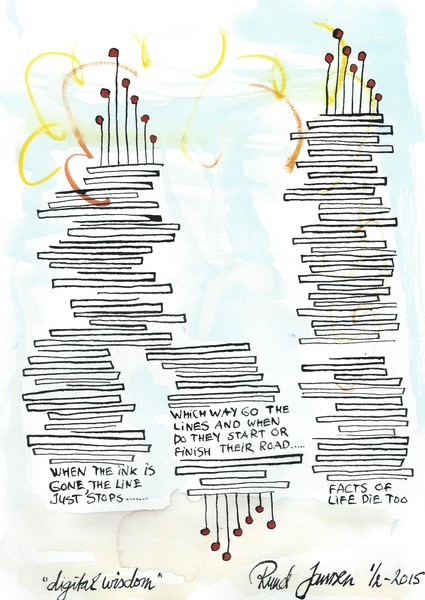 WHICH WAY GO THE
LINES AND WHEN
DO THEY START OR
FINISH THEIR ROAD.....
WHEN THE INK IS
GONE THE LINE
JUST STOPS.......
FACTS OF
LIFE DIE TOO
"digital wisdom"
Ruud Janssen 1/2-2015